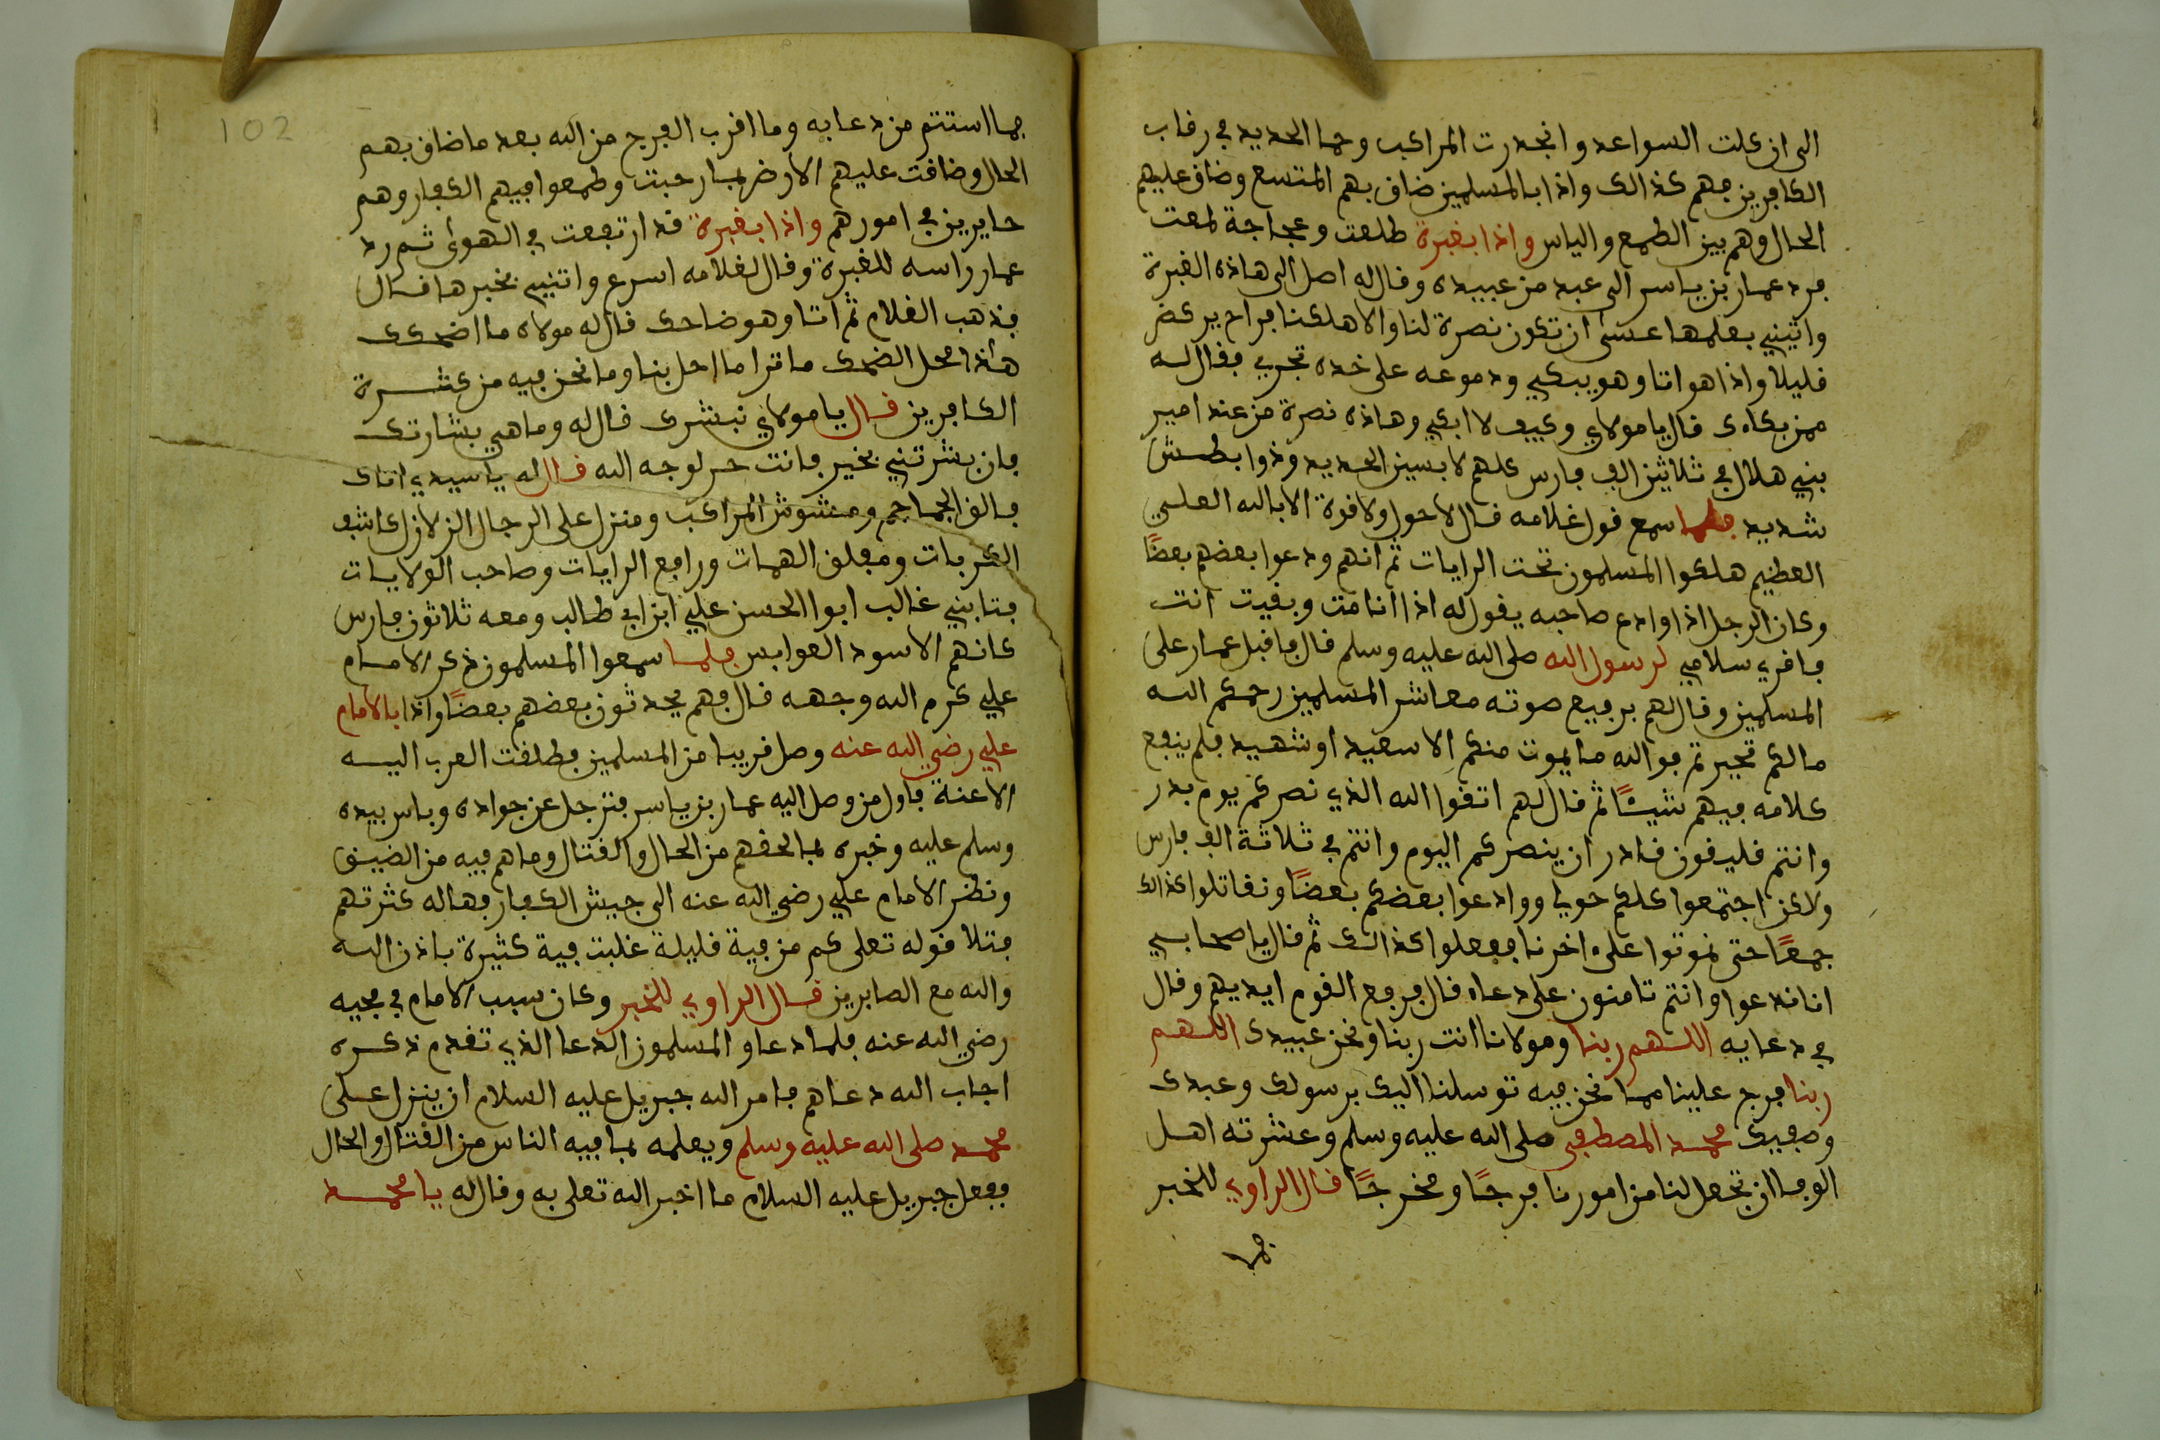 الى ان كلت السواعد وانحدرت المراكب وحما الحديد في رقاب
الكافرين فهم كذالك واذا بالمسلمين ضاق بهم المتسع وضاق عليهم
الحال وهم بين الطمع والياس واذا بغبرة طلعت وعجاجة لمعت
فرد عمار بن ياسر الى عبد من عبيده وقال له اصل الى هاذه الغبرة
واتيني بعلمها عسى ان تكون نصرة لنا والا هلكنا فراح يركض
قليلا واذا هو اتا وهو يبكي ودموعه على خده تجري فقال له
مم بكاءك قال يا مولاي وكيف لا ابكي وهاذه نصرة من عند امير
بني هلال في ثلاثين الف فارس كلهم لابسين الحديد وذوا بطش
شديد فلما سمع قول غلامه قال لا حول ولا قوة الا بالله العلي
العظيم هلكوا المسلمون تحت الرايات ثم انهم ودعوا بعضهم بعضًا
وكان الرجل اذا وادع صاحبه يقول له اذا انا مت وبقيت انت
فاقري سلامي لرسول الله صلى الله عليه وسلم قال فاقبل عمار على
المسلمين وقال لهم برفيع صوته معاشر المسلمين رحمكم الله
مالكم تحيرتم فوالله ما يموت منكم الا سعيد او شهيد فلم ينفع
كلامه فيهم شيئًا ثم قال لهم اتقوا الله الذي نصركم يوم بدر
وانتم قليقون قادر ان ينصركم اليوم وانتم في ثلاثة الف فارس
ولاكن اجتمعوا كلكم حويا ووادعوا بعضكم بعضًا ونقاتلوا كذالك
جمعًا حتى نموتوا على اخرنا ففعلوا كذالك ثم قال يا صحابي
انا ندعوا وانتم تامنون على دعاه قال فرفع القوم ايديهم وقال
في دعايه اللهم ربنا ومولانا انت ربنا ونحن عبيدك اللهم
ربنا فرج علينا مما نحن فيه توسلنا اليك برسولك وعبدك
وصفيك محمد المصطفى صلى الله عليه وسلم وعشرته اهل
الوفا ان تجعل لنا من امورنا فرجًا ومخرجًا قال الراوي للخبر
فما استتم من دعايه وما اقرب الفرج من الله بعد ما ضاق بهم
الحال وضاقت عليهم الارض بما رحبت وطمعوا فيهم الكفار وهم
حايرين في امورهم واذا بغبرة قد ارتفعت في الهوى ثم رد
عمار راسه للغبرة وقال لغلامه اسرع واتيني بخبرها قال
فذهب الغلام ثم اتا وهو ضاحك قال له مولاه ما اضحكك
هاذا محل الضحك ما ترا ما احل بنا وما نحن فيه من كثرة
الكافرين قال يا مولاي نبشرك قال له وما هي بشارتك
فان بشرتني بخير فانت حر لوجه الله قال له يا سيدي اتاك
فالق الجماجم ومشوش المراكب ومنزل على الرجال الزلازل كاشف
الكربات ومفلق الهمات ورافع الرايات وصاحب الولايات
فتا بني غالب ابوا الحسن علي ابن ابي طالب ومعه ثلاثون فارس
كانهم الاسود العوابس فلما سمعوا المسلمون ذكر الامام
علي كرم الله وجهه قال فهم يحدثون بعضهم بعضًا واذا بالامام
علي رضي الله عنه وصل قريبا من المسلمين فطلقت العرب اليه
الاعنة فاول من وصل اليه عمار بن ياسر فترجل عن جواده وباس يده
وسلم عليه وخبره بما لحقهم من الحال والقتال وما هم فيه من الضيق
ونظر الامام علي رضي الله عنه الى جيش الكفار فهاله كثرتهم
فتلا قوله تعلى كم من فية قليلة غلبت فية كثيرة باذن الله
والله مع الصابرين قال الراوي للخبر وكان سبب الامام في مجيه
رضي الله عنه فلما دعاو المسلمون الدعا الذي تقدم ذكره
اجاب الله دعاهم فامر الله جبريل عليه السلام ان ينزل على
محمد صلى الله عليه وسلم ويعلمه بما فيه الناس من القتال والحال
ففعل جبريل عليه السلام ما اخبر الله تعلى به وقال له يا محمد
102